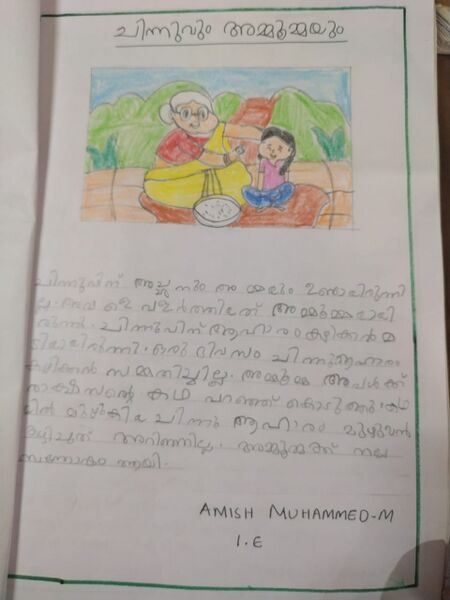 ചിന്നുവും അമ്മൂമ്മയും
ചിന്നുവിന് അച്ഛനും അമ്മയും ഉണ്ടായിരുന്നി
ല്ല. അവളെ വളർത്തിയത് അമ്മൂമ്മയായി
രുന്നു. ചിന്നുവിന് ആഹാരം കഴിക്കാൻ മ
ടിയായിരുന്നു. ഒരു ദിവസം ചിന്നു ആഹാരം
കഴിക്കാൻ സമ്മതിച്ചില്ല. അമ്മൂമ്മ അവൾക്ക്
രാക്ഷസന്റെ കഥ പറഞ്ഞ് കൊടുത്തു. കഥ
യിൽ മുഴുകിയ ചിന്നു ആഹാരം മുഴുവൻ
കഴിച്ചത് അറിഞ്ഞില്ല. അമ്മൂമ്മക്ക് നല്ല
സന്തോഷം ആയി.
AMISH MUHAMMED-M
1.E